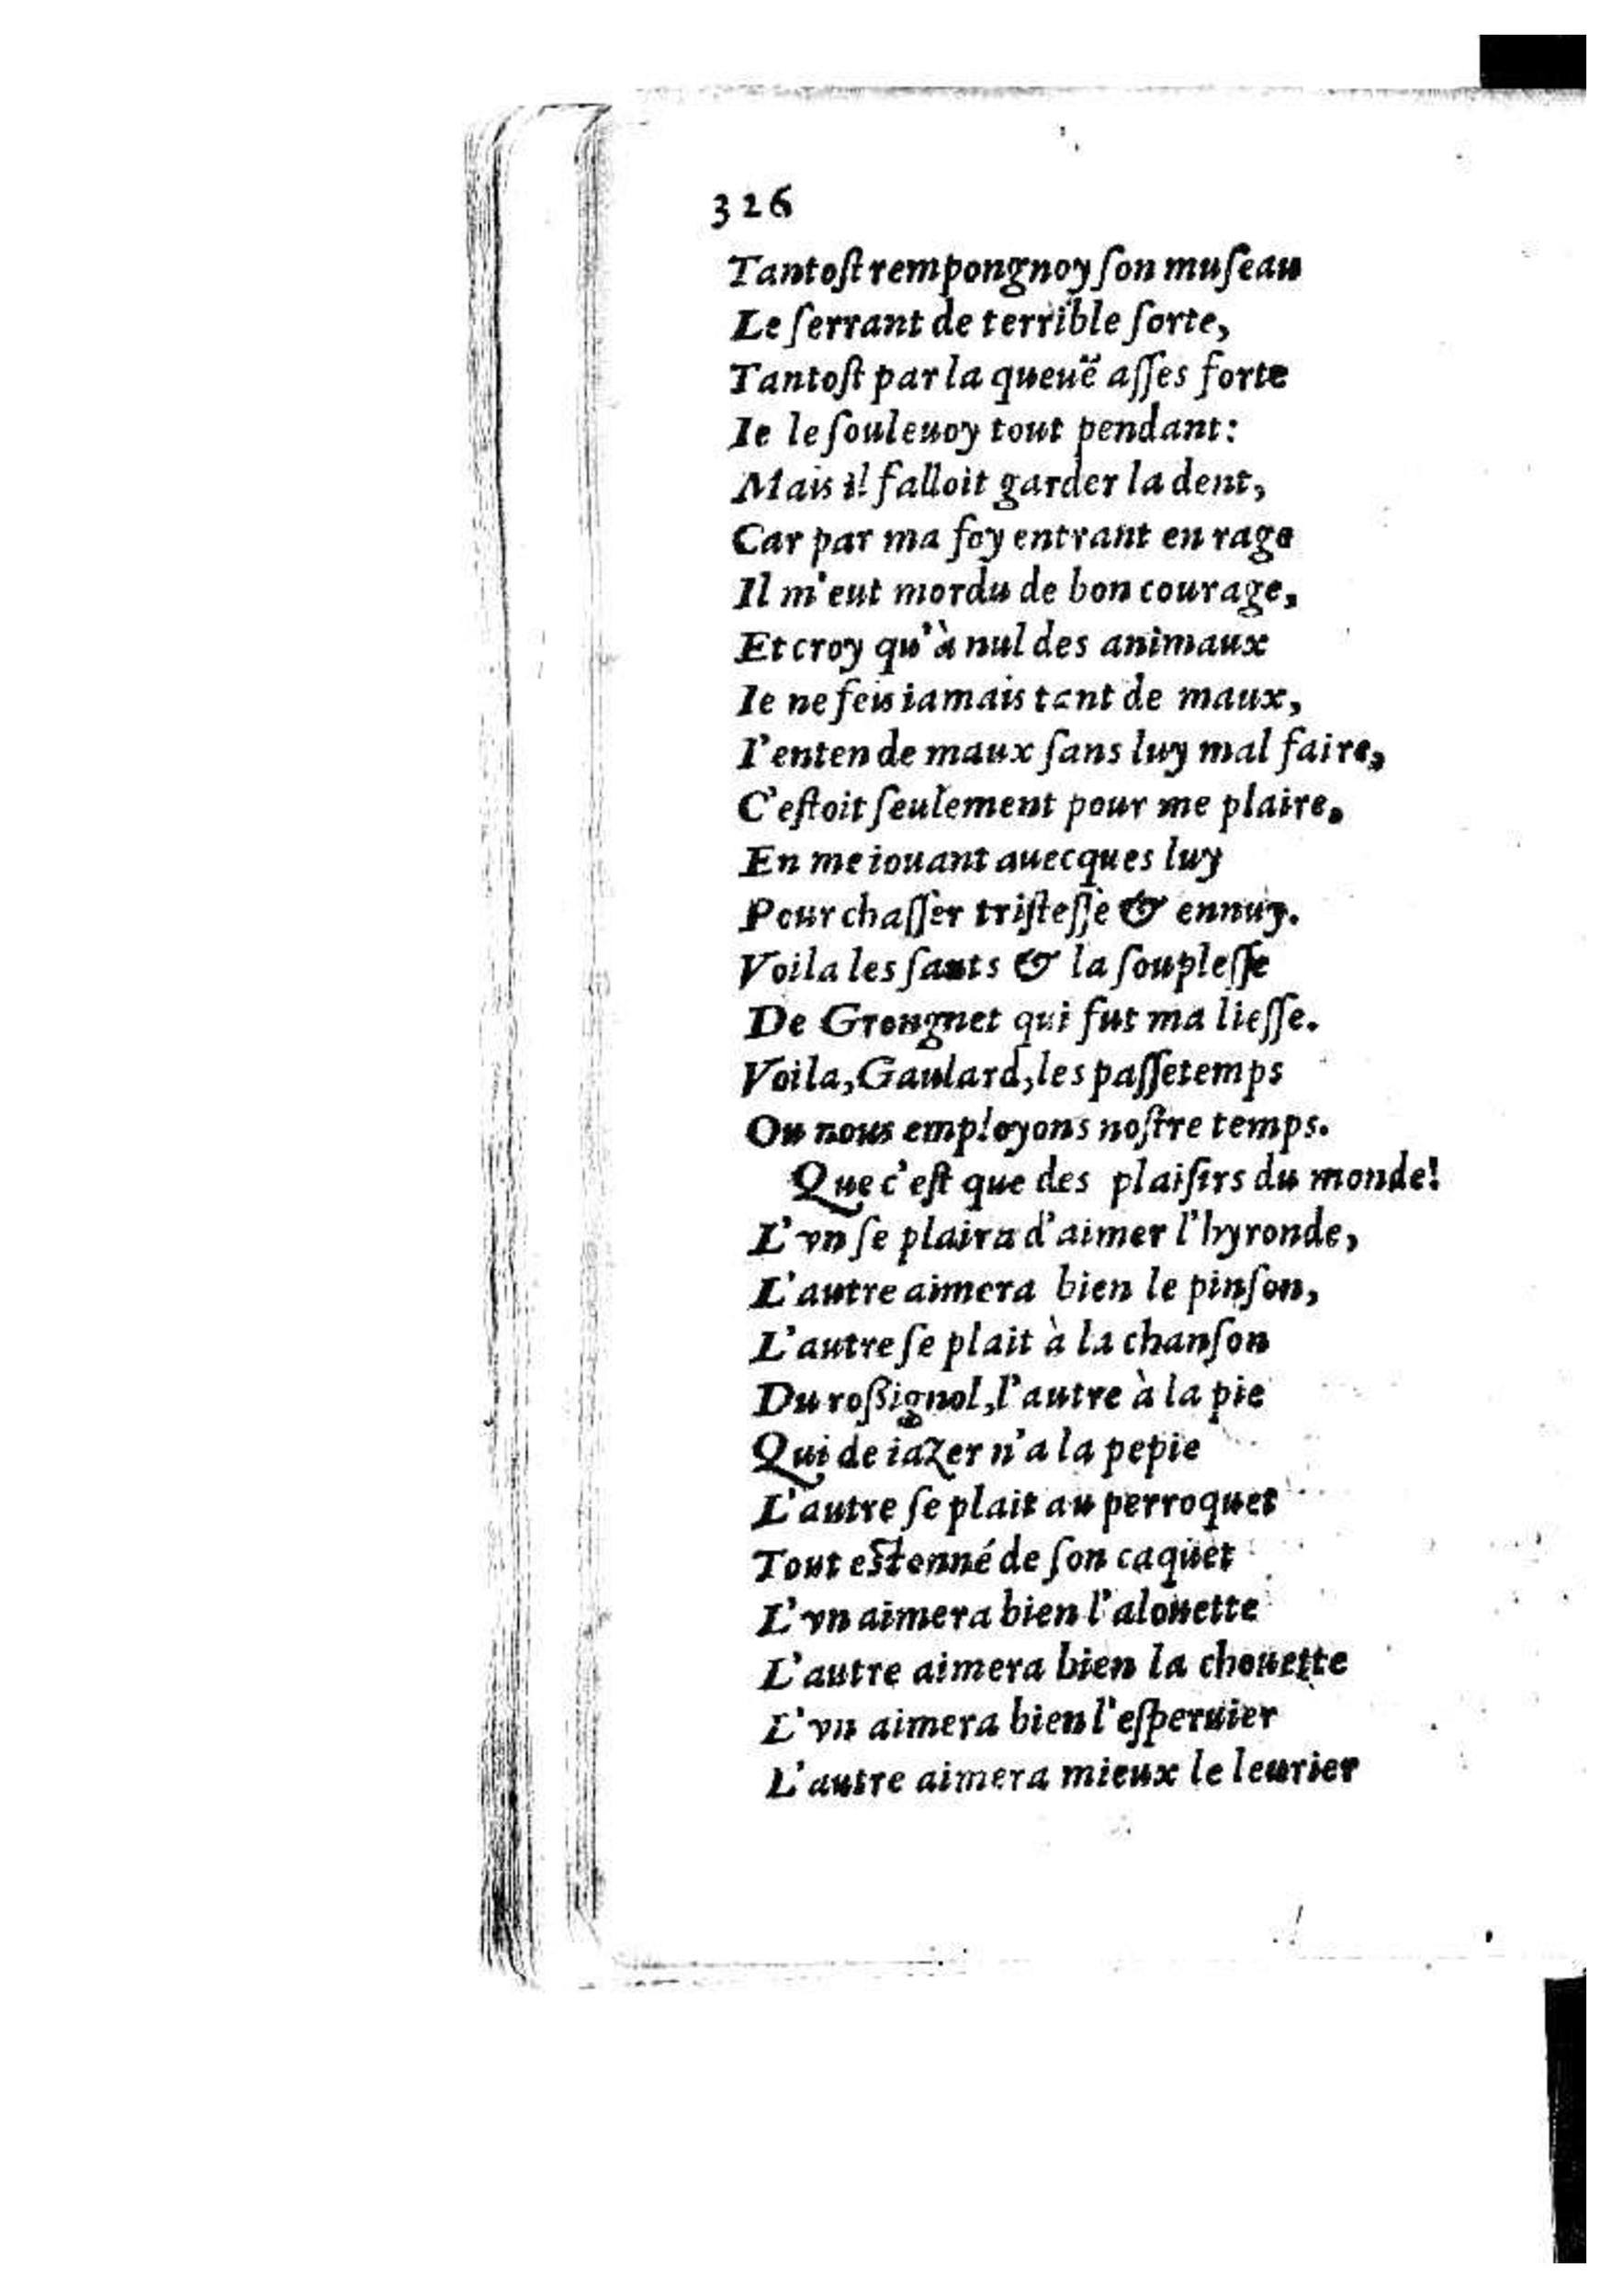 326
Tantoſt rempongnoy ſon muſeau
Le ſerrant de terrible ſorte,
Tantoſt par la queuë aſſes forte
Ie le ſouleuoy tout pendant:
Mais il falloit garder la dent,
Car par ma foy entrant en rage
Il m'eut mordu de bon courage,
Et croy qu'à nul des animaux
Ie ne feis iamais tant de maux,
I'enten de maux ſans luy mal faire,
C'eſtoit ſeulement pour me plaire,
En me iouant auecques luy
Pour chaſſer triſteſſe & ennuy.
Voila les ſauts & la ſoupleſſe
De Grongnet qui fut ma lieſſe.
Voila, Gaulard, les paſſetemps
Ou nous employons noſtre temps.
Que c'eſt que des plaiſirs du monde!
L'vn ſe plaira d'aimer l'hyronde,
L'autre aimera bien le pinſon,
L'autre ſe plait à la chanſon
Du roßignol, l'autre à la pie
Qui de iazer n'a la pepie
L'autre ſe plait au perroquet
Tout estonné de ſon caquet
L'vn aimera bien l'alouette
L'autre aimera bien la chouette
L'vn aimera bien l'eſperuier
L'autre aimera mieux le leurier